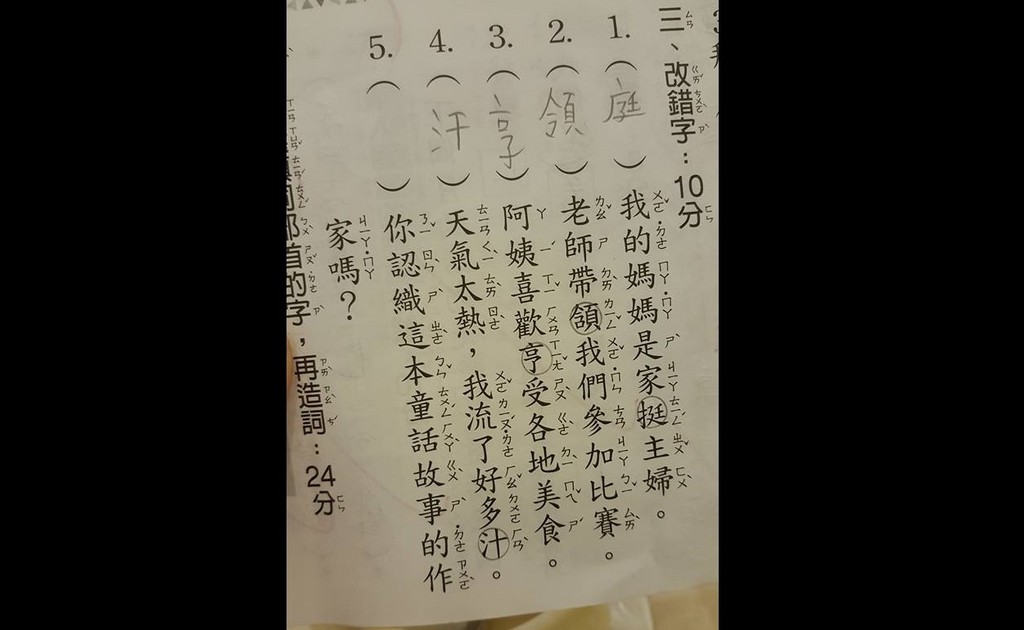 三、改錯字：10分
1.（庭）我的媽媽是家挺主婦。
2.（領）老師帶頜我們參加比賽。
3.（享）阿姨喜歡亨受各地美食。
4.（汗）天氣太熱，我流了好多汁。
5.（ ）你認織這本童話故事的作
家嗎？
的字，再造詞：24分